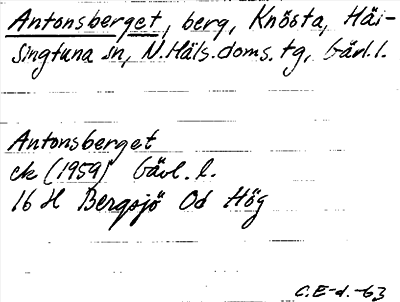 Antonsberget, berg, Knösta, Häl-
singtuna sn, N.Häls.doms.tg, Gävl.l.
Antonsberget
ek (1959) Gävl. l.
16 H Bergsjö Od Hög
C.E-d.-63